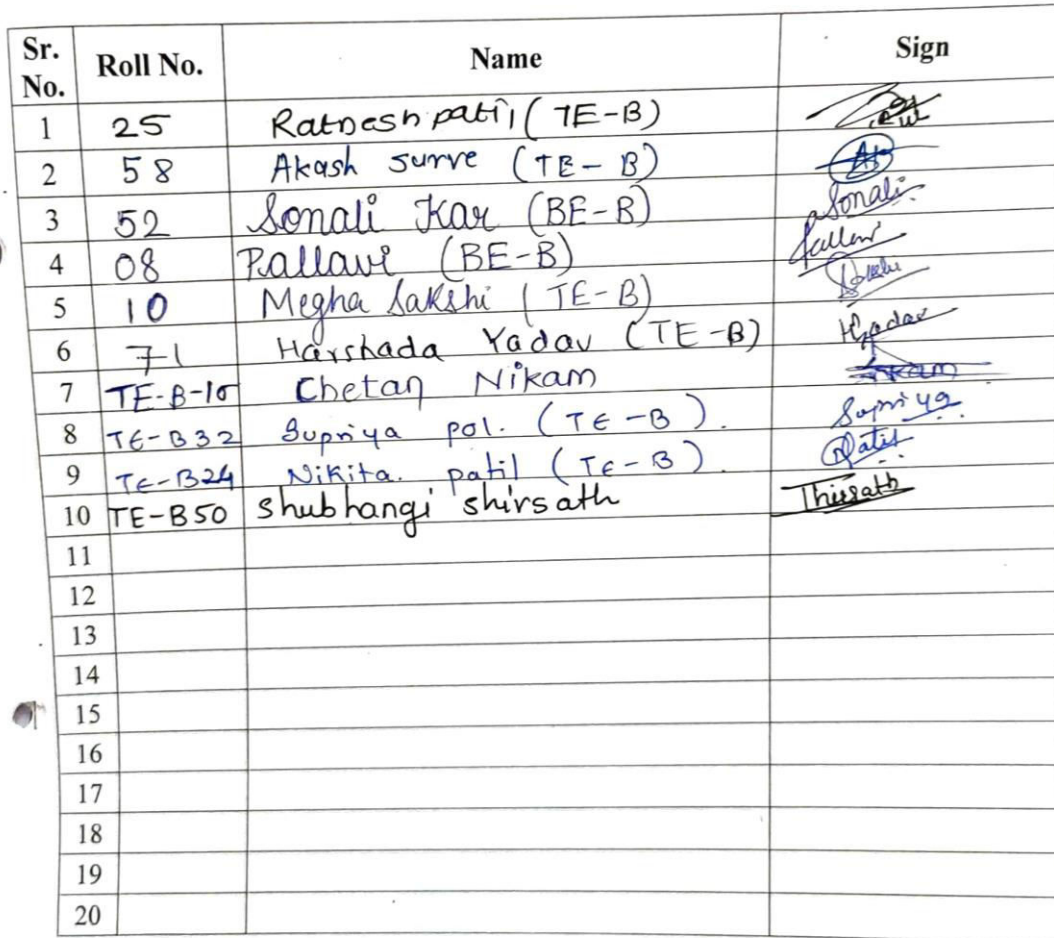 Sr. No. Roll No. Name Sign
1 25 Ratnesh patil ( TE-B)
2 58 Akash surve (TE- B)
3 52 Sonali Kar (BE-B) Sonali
4 08 Pallavi (BE-B) Pallavi
5 10 Megha Sakshi ( TE-B)
6 71 Harshada Yadav (TE-B) HYadav
7 TE-B-10 Chetan Nikam
8 TE-B32 Supriya pol. (TE-B). Supriya
9 TE-B24 Nikita. patil (TE-B). Patil
10 TE-B50 shubhangi shirsath
11
12
13
14
15
16
17
18
19
20